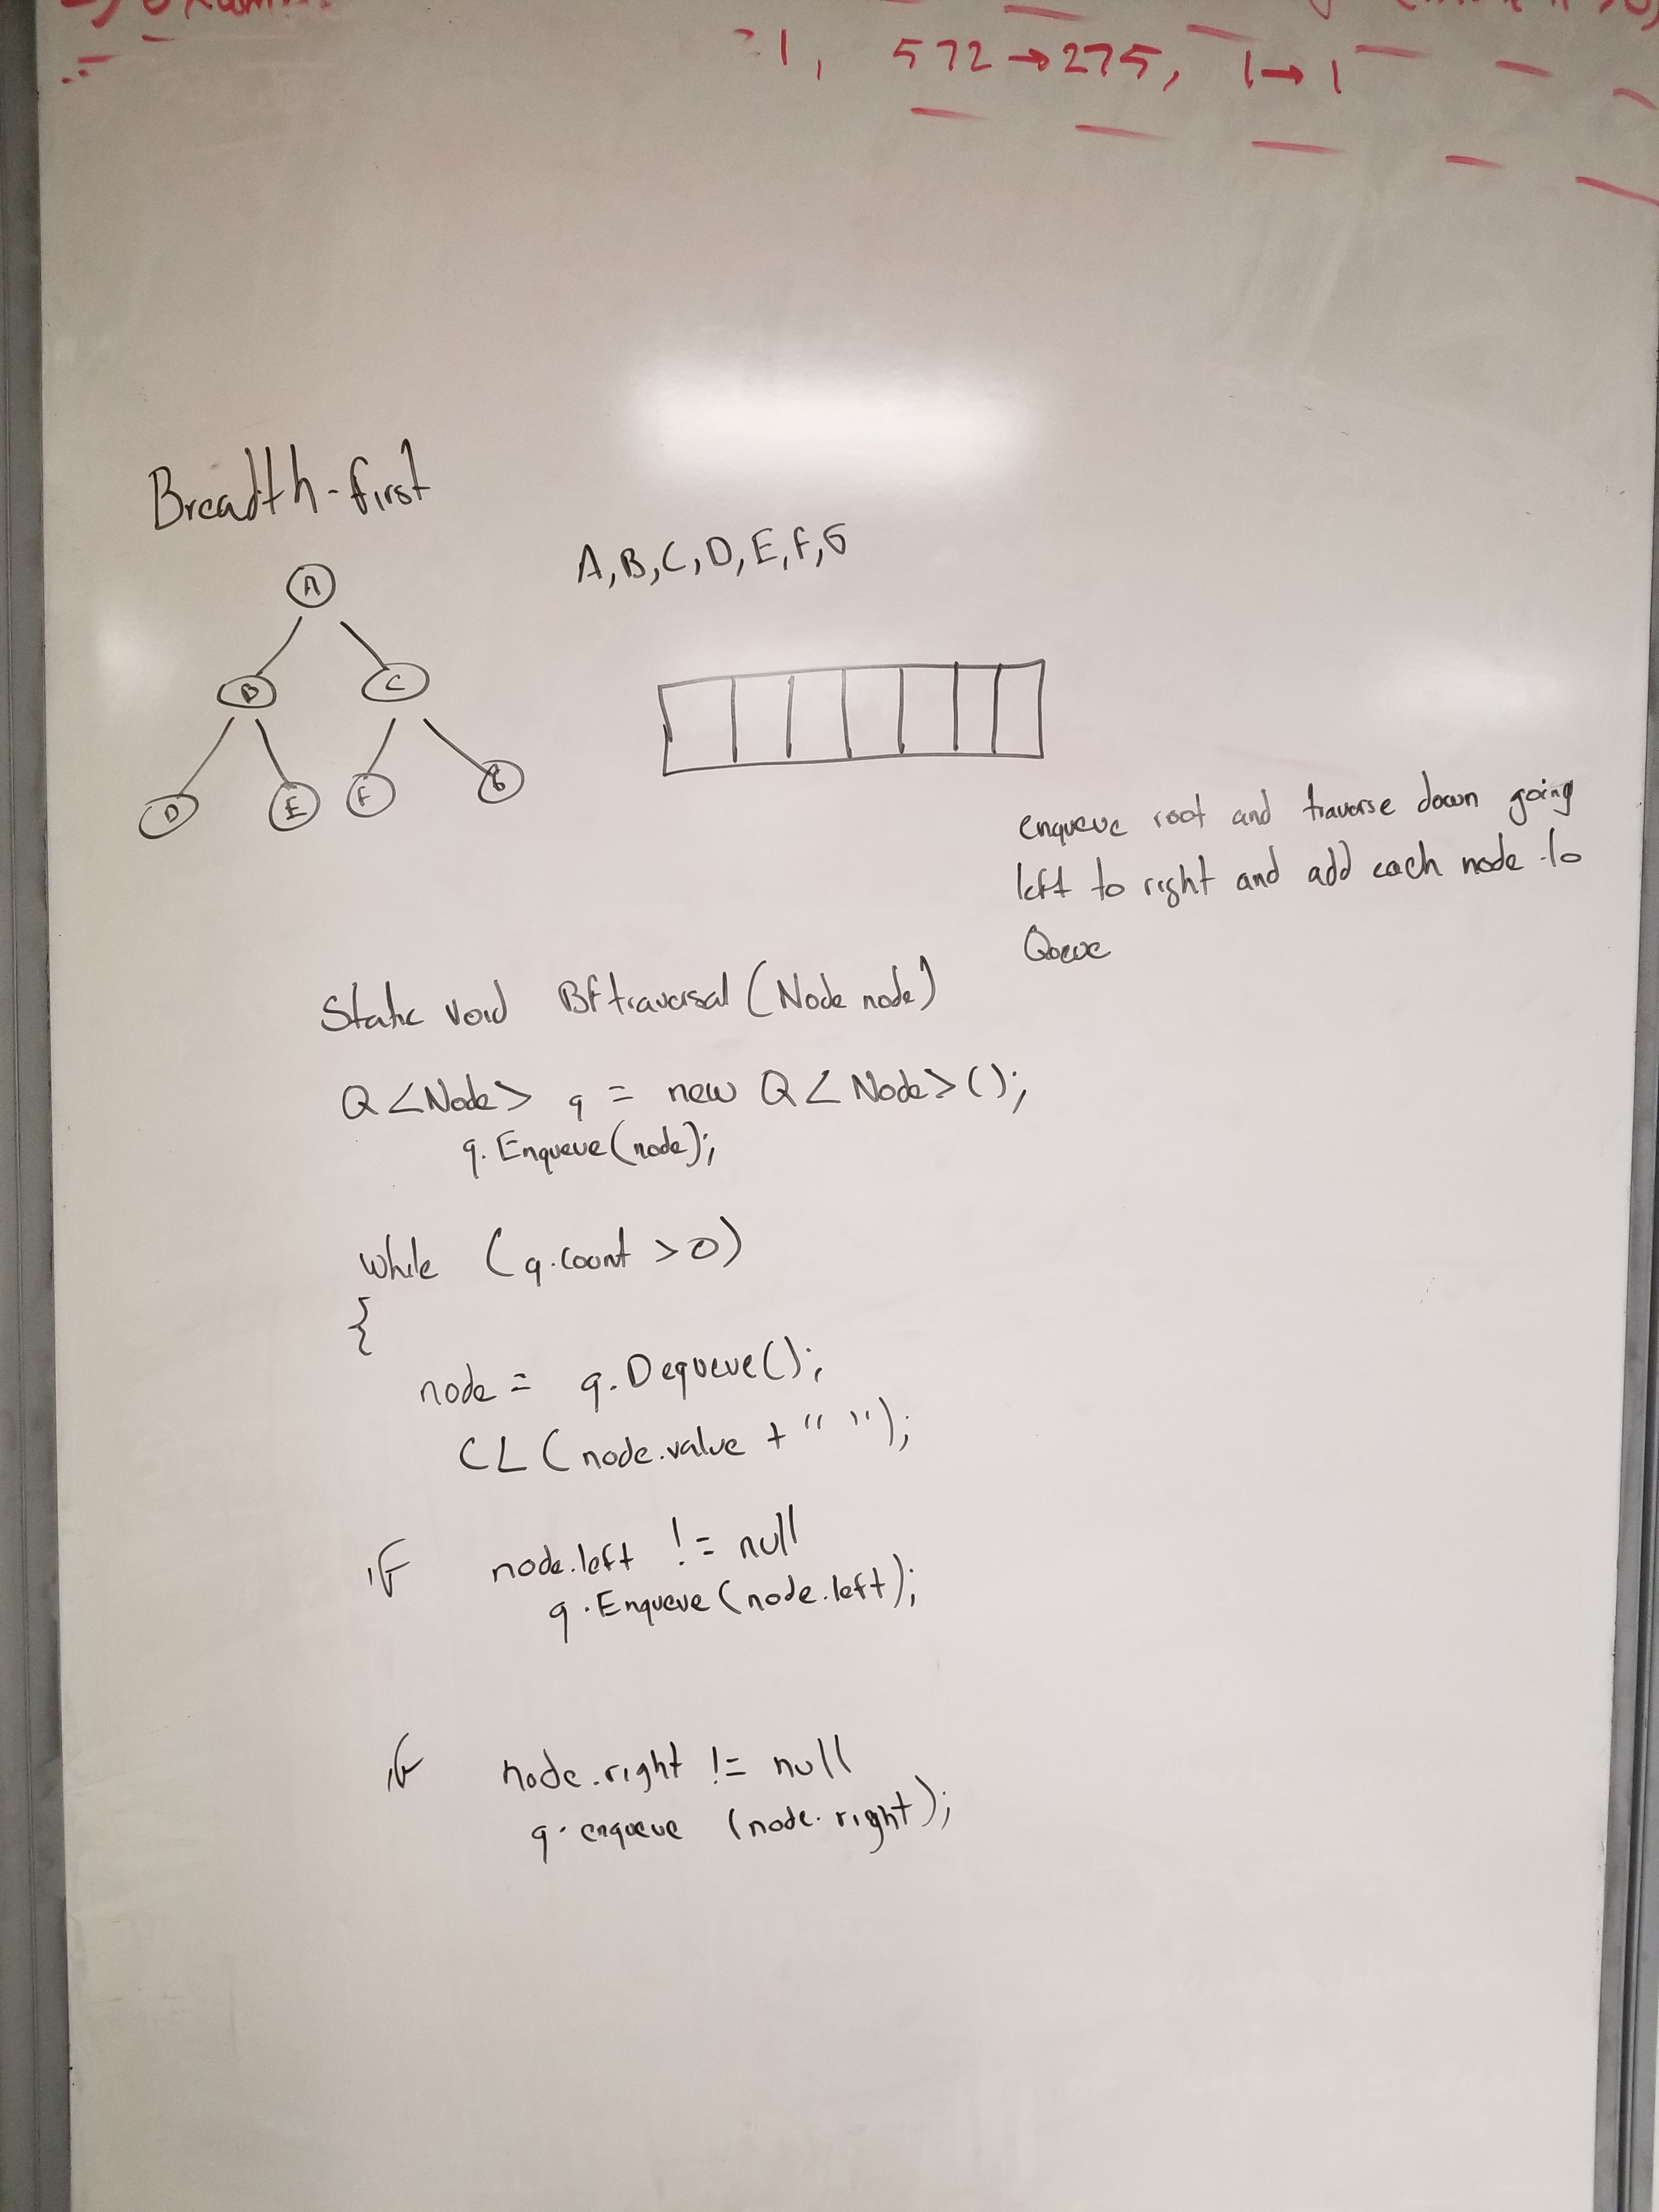 1, 572→275, 1→1
Breadth-first
A, B, C, D, E, F, G
A
B C
D E F G
enqueue root and traverse down going
left to right and add each node to
Queue
Static void BFtraversal (Node node)
Q <Node> q = new Q <Node> ();
q. Enqueue (node);
while (q.count > 0)
{
node = q. Dequeue ();
CL (node.value + " ");
if node.left != null
q. Enqueue (node.left);
if node.right != null
q. enqueue (node. right);